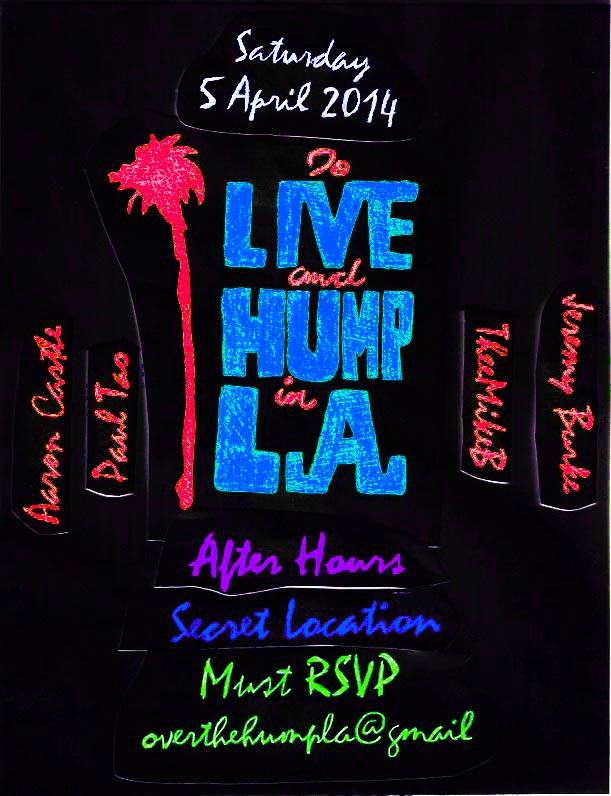 Saturday
5 April 2014
To
LIVE
and
HUMP
in
L.A.
Aaron Castle
Paul Tao
TheeMikeB
Jeremy Burke
After Hours
Secret Location
Must RSVP
overthehumpla@gmail